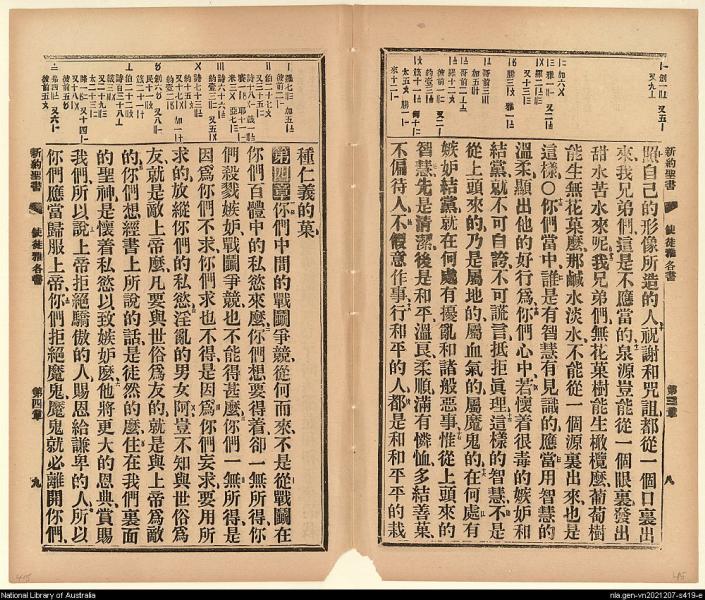 新約聖書
使徒雅各書
第三章
八
照自己的形像所造的人祝謝和咒詛都從一個口裏出
來我兄弟們這是不應當的泉源豈能從一個眼裏發出
甜水苦水來呢我兄弟們無花菓樹能生橄欖麼葡萄樹
能生無花菓麼那鹹水淡水不能從一個源裏出來也是
這樣○你們當中誰是有智慧有見識的應當用智慧的
溫柔顯出他的好行爲你們心中若懷着很毒的嫉妒和
結黨就不可自誇不可謊言抵拒眞理這樣的智慧不是
從上頭來的乃是屬地的屬血氣的屬魔鬼的在何處有
嫉妒結黨就在何處有擾亂和諸般惡事惟從上頭來的
智慧先是清潔後是和平溫良柔順滿有憐恤多結善菓
不偏待人不假意作事行和平的人都是和和平平的栽
種仁義的菓
第四章你們中間的戰鬭爭競從何而來不是從戰鬭在
你們百體中的私慾來麼你們想要得着卻一無所得你
們殺戮嫉妒戰鬭爭競也不能得甚麼你們一無所得是
因爲你們不求你們求也不得是因爲你們妄求要用所
求的放縱你們的私慾淫亂的男女阿豈不知與世俗爲
友就是敵上帝麼凡要與世俗爲友的就是與上帝爲敵
的你們想經書上所說的話是徒然的麼住在我們裏面
的聖神是懷着私慾以致嫉妒麼他將更大的恩典賞賜
我們所以說上帝拒絕驕傲的人賜恩給謙卑的人所以
你們應當歸服上帝你們拒絕魔鬼魔鬼就必離開你們
新約聖書
使徒雅各書
第四章
九
National Library of Australia
nla.gen-vn2021207-s419-e